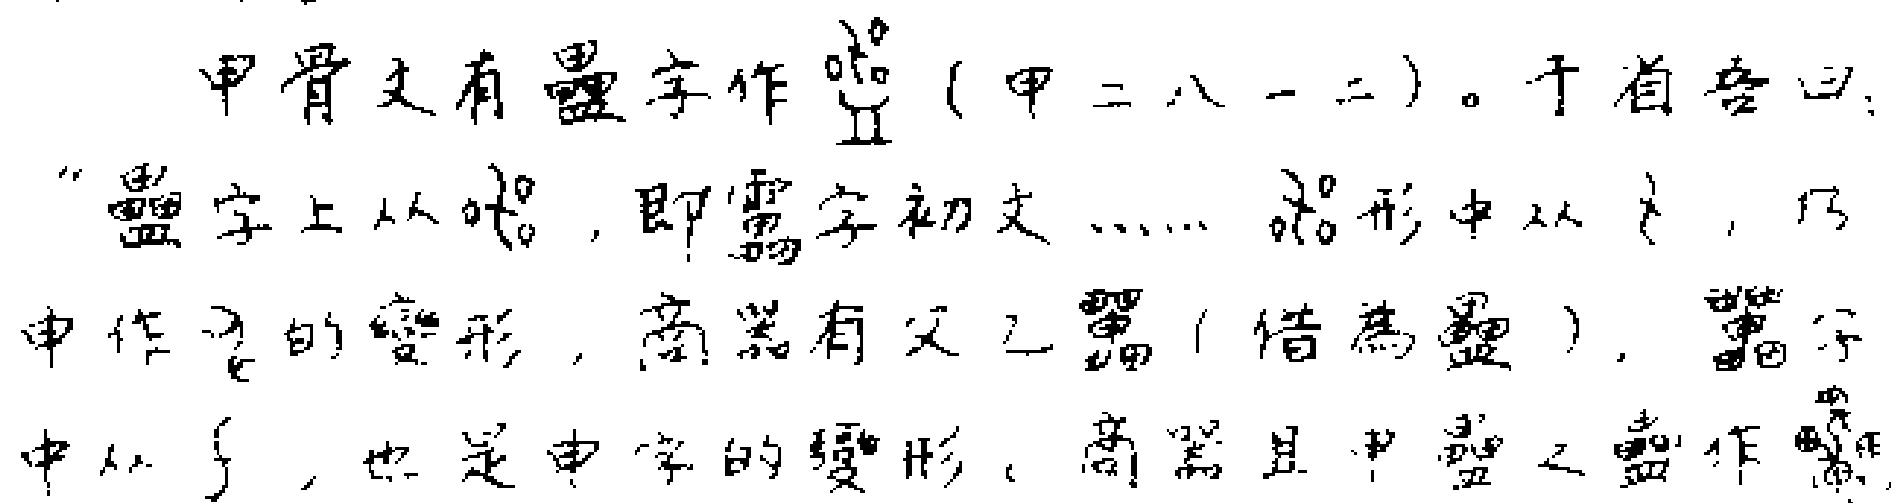 甲骨文有罍字作（甲二八一二）。于省吾曰：
“罍字上从，即靁字初文……形中从，乃
申作的變形，商器有父乙（借為罍）．字
中从，也是申字的變形．商器且甲罍之罍作